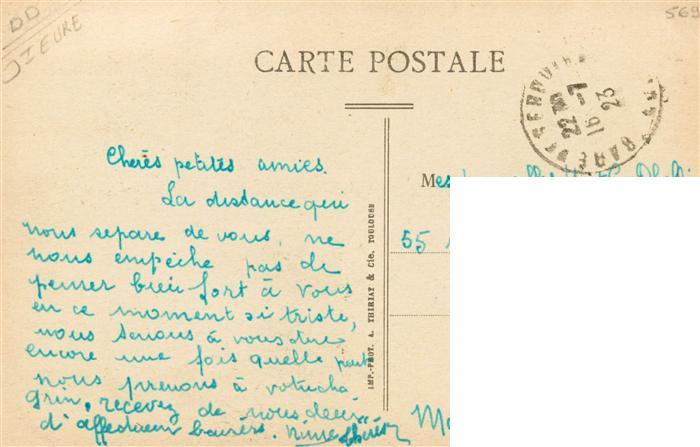 DD
JIEURE
569
CARTE POSTALE
22 30
16 - 7
23
GARE
Chères petites amies.
La distance qui
nous separe de vous, ne
nous empêche pas de
penser bien fort à vous
en ce moment si triste,
nous tenons à vous dire
encore une fois quelle part
nous prenons à votre cha
grin, recevez de nous deux
d'affectueux baisers.
Mes
55
IMP.-PHOT. A. THIRIAT & Cie, TOULOUSE